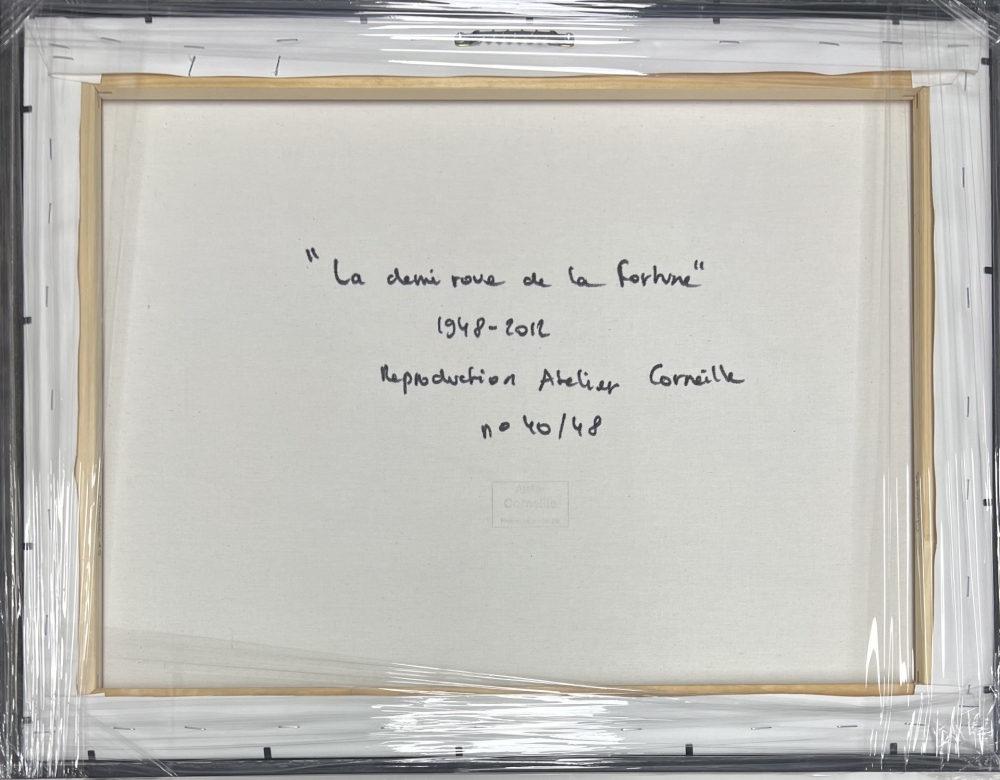 "La demi roue de la fortune"
1948-2012
Reproduction Atelier Corneille
n° 40/48
Corneille